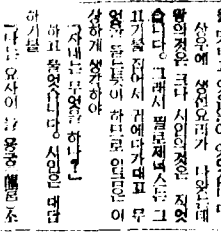 상우에 생선요리가 나왓는데
왕의것은 크다 시인의것은 적엇
습니다. 그래서 필로제넉스는 그
고기를 집어서 귀에다가대고 무
엇을 듣는듯이 하므로 임금은 이
상하게 생각하야
「자네는 무엇을 하나?」
하고 물엇습니다. 시인은 대답
하기를
「나는 요사이 용궁 龍宮 조